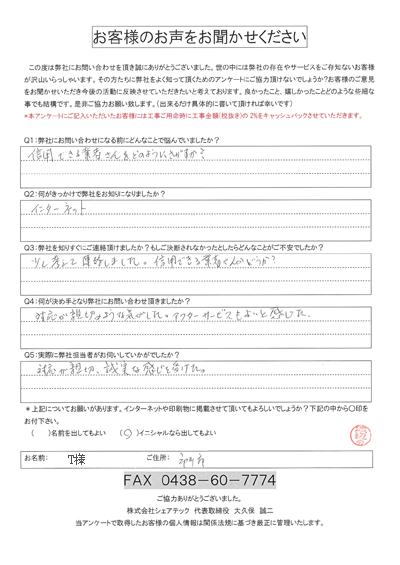 お客様のお声をお聞かせください
この度は弊社にお問い合わせを頂き誠にありがとうございました。世の中には弊社の存在やサービスをご存知ないお客様
が沢山いらっしゃいます。その方たちに弊社をよく知って頂くためのアンケートにご協力頂けないでしょうか?お客様のご意見
をお聞かせいただき今後の活動に反映させていきたいと考えております。良かったこと、嬉しかったことどのような些細な
事でも結構です。是非ご協力お願い致します。(出来るだけ具体的に書いて頂ければ幸いです)
*本アンケートにご記入いただいたお客様には工事ご用命時に工事金額(税抜き)の 2%をキャッシュバックさせていただきます。
Q1:弊社にお問い合わせになる前にどんなことで悩んでいましたか?
信用できる業者さんをどのようにさがすか?
Q2:何がきっかけで弊社をお知りになりましたか?
インターネット
Q3:弊社を知りすぐにご連絡頂けましたか?もしご決断されなかったとしたらどんなことがご不安でしたか?
少し考えて連絡しました。信用できる業者さんかどうか?
Q4:何が決め手となり弊社にお問い合わせ頂きましたか?
対応が親切なような気がした。アフターサービスもよいと感じた。
Q5:実際に弊社担当者がお伺いしていかがでしたか?
対応が親切、誠実な感じを受けた。
*上記についてお願いがあります。インターネットや印刷物に掲載させて頂いてもよろしいでしょうか?下記の中から〇印を
お付下さい。
( )名前を出してもよい (〇)イニシャルなら出してもよい
お名前: T様 ご住所:
FAX 0438-60-7774
ご協力ありがとうございました。
株式会社シェアテック 代表取締役 大久保 誠二
当アンケートで取得したお客様の個人情報は関係法規に基づき厳正に管理いたします。